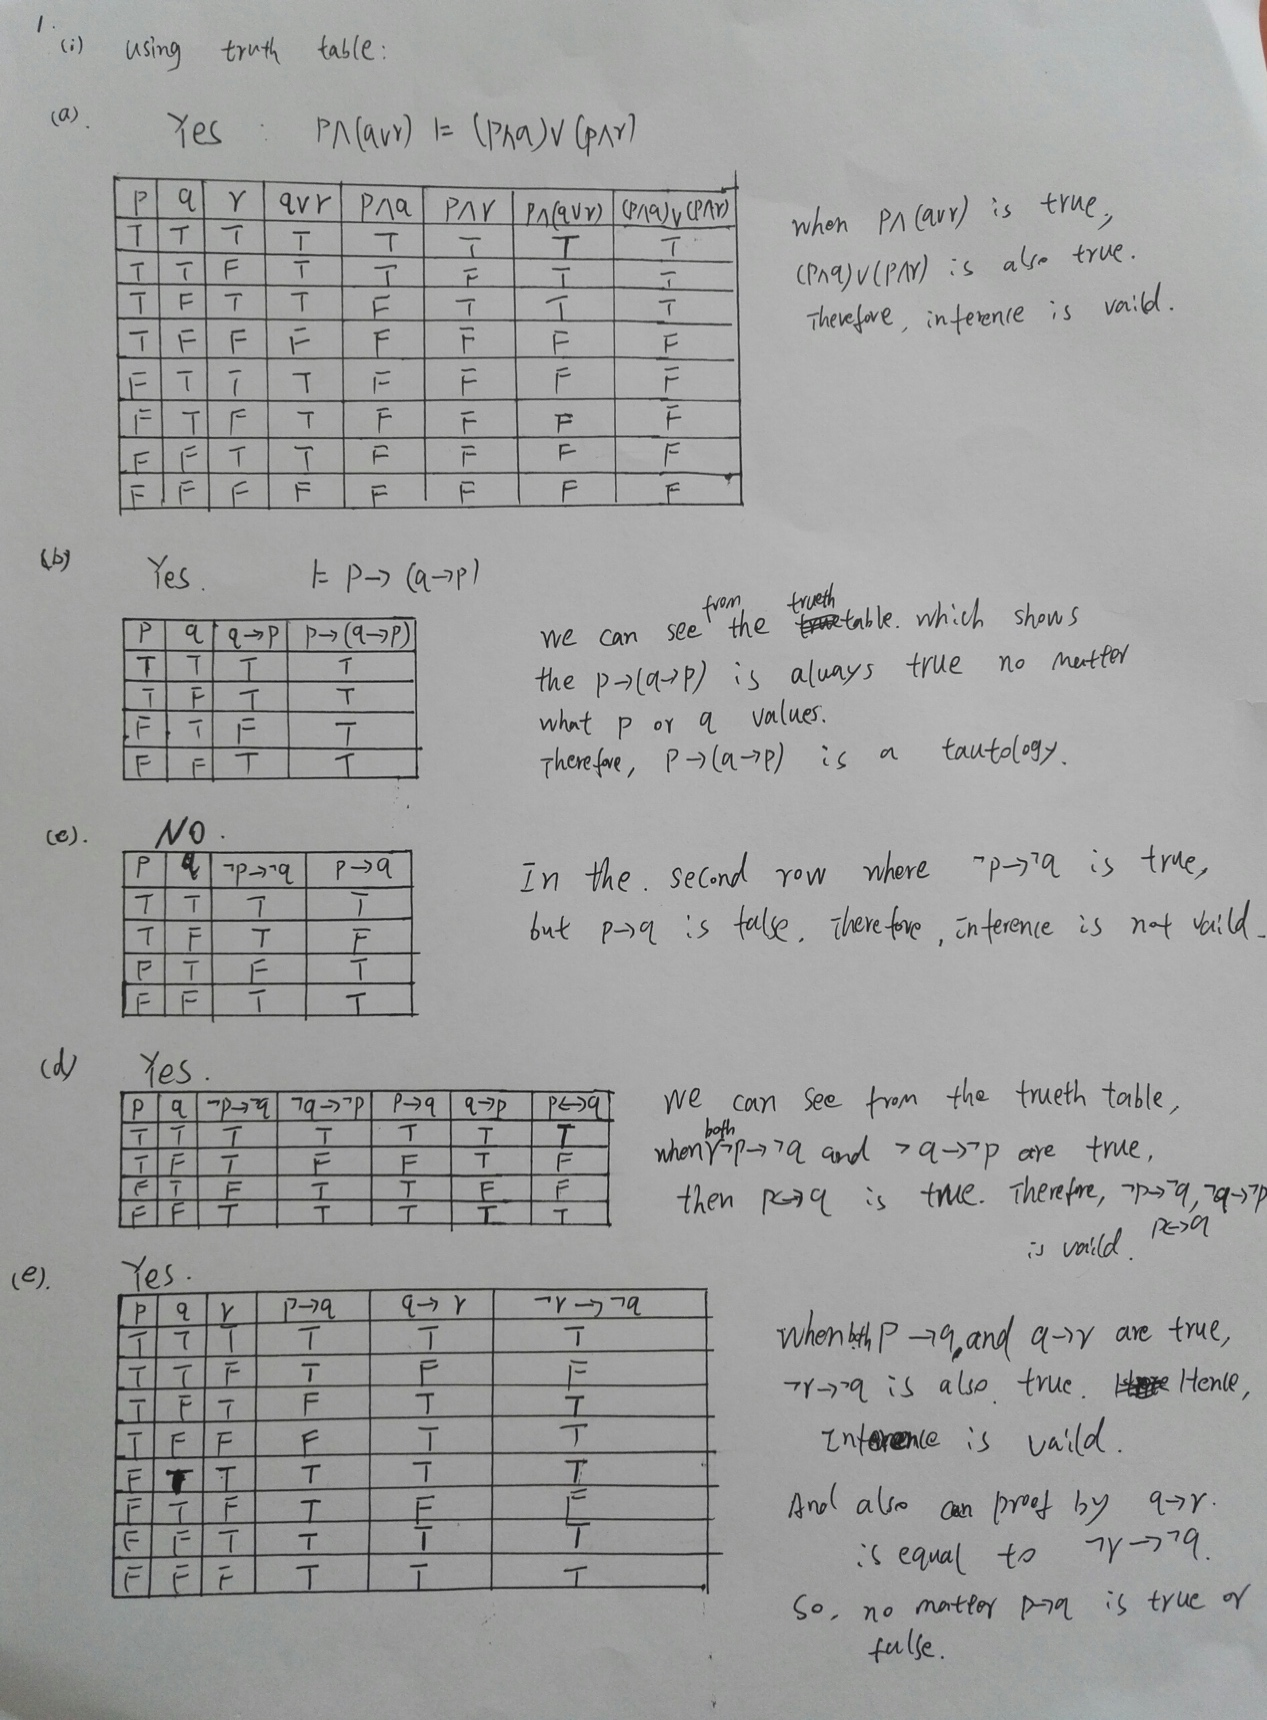 1.
(i) using truth table:
(a). Yes : P∧(q∨r) ⊨ (P∧q)∨(p∧r)
P q r q∨r P∧q P∧r P∧(q∨r) (P∧q)∨(P∧r)
T T T T T T T T
T T F T T F T T
T F T T F T T T
T F F F F F F F
F T T T F F F F
F T F T F F F F
F F T T F F F F
F F F F F F F F
when P∧(q∨r) is true,
(P∧q)∨(P∧r) is also true.
Therefore, inference is vaild.
(b) Yes. ⊨ P→(q→P)
P q q→P P→(q→P)
T T T T
T F T T
F T F T
F F T T
we can see from the trueth table. which shows
the P→(q→P) is always true no matter
what p or q values.
Therefore, P→(q→P) is a tautology.
(c). NO.
P q ¬P→¬q P→q
T T T T
T F T F
F T F T
F F T T
In the. second row where ¬p→¬q is true,
but p→q is false. Therefore, inference is not vaild.
(d) Yes.
P q ¬P→¬q ¬q→¬P P→q q→P P↔q
T T T T T T T
T F T F F T F
F T F T T F F
F F T T T T T
We can see from the trueth table,
when both ¬p→¬q and ¬q→¬p are true,
then p↔q is true. Therefore, ¬p→¬q, ¬q→¬p
is vaild. p↔q
(e). Yes.
P q r p→q q→r ¬r→¬q
T T T T T T
T T F T F F
T F T F T T
T F F F T T
F T T T T T
F T F T F F
F F T T T T
F F F T T T
When both P→q, and q→r are true,
¬r→¬q is also true. Hence,
Inference is vaild.
And also can proof by q→r.
is equal to ¬r→¬q.
So, no matter p→q is true or
false.